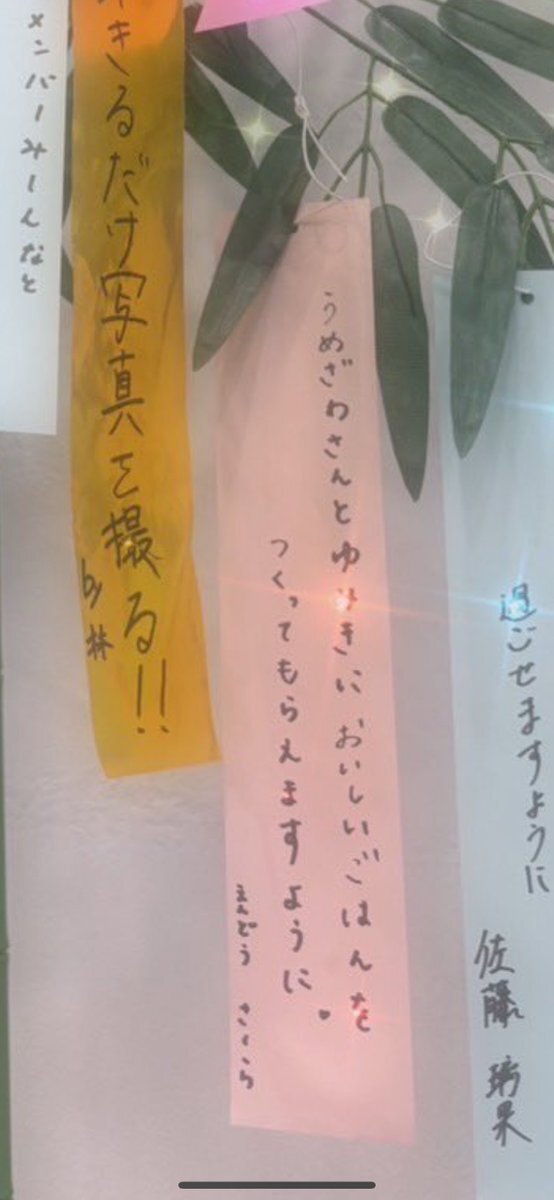 過ごせますように
佐藤 璃果
うめざわさんと に おいしいごはんを
つくってもらえますように♥
えんどう さくら
きるだけ写真を撮る!!
by 林
メンバーみーんなと